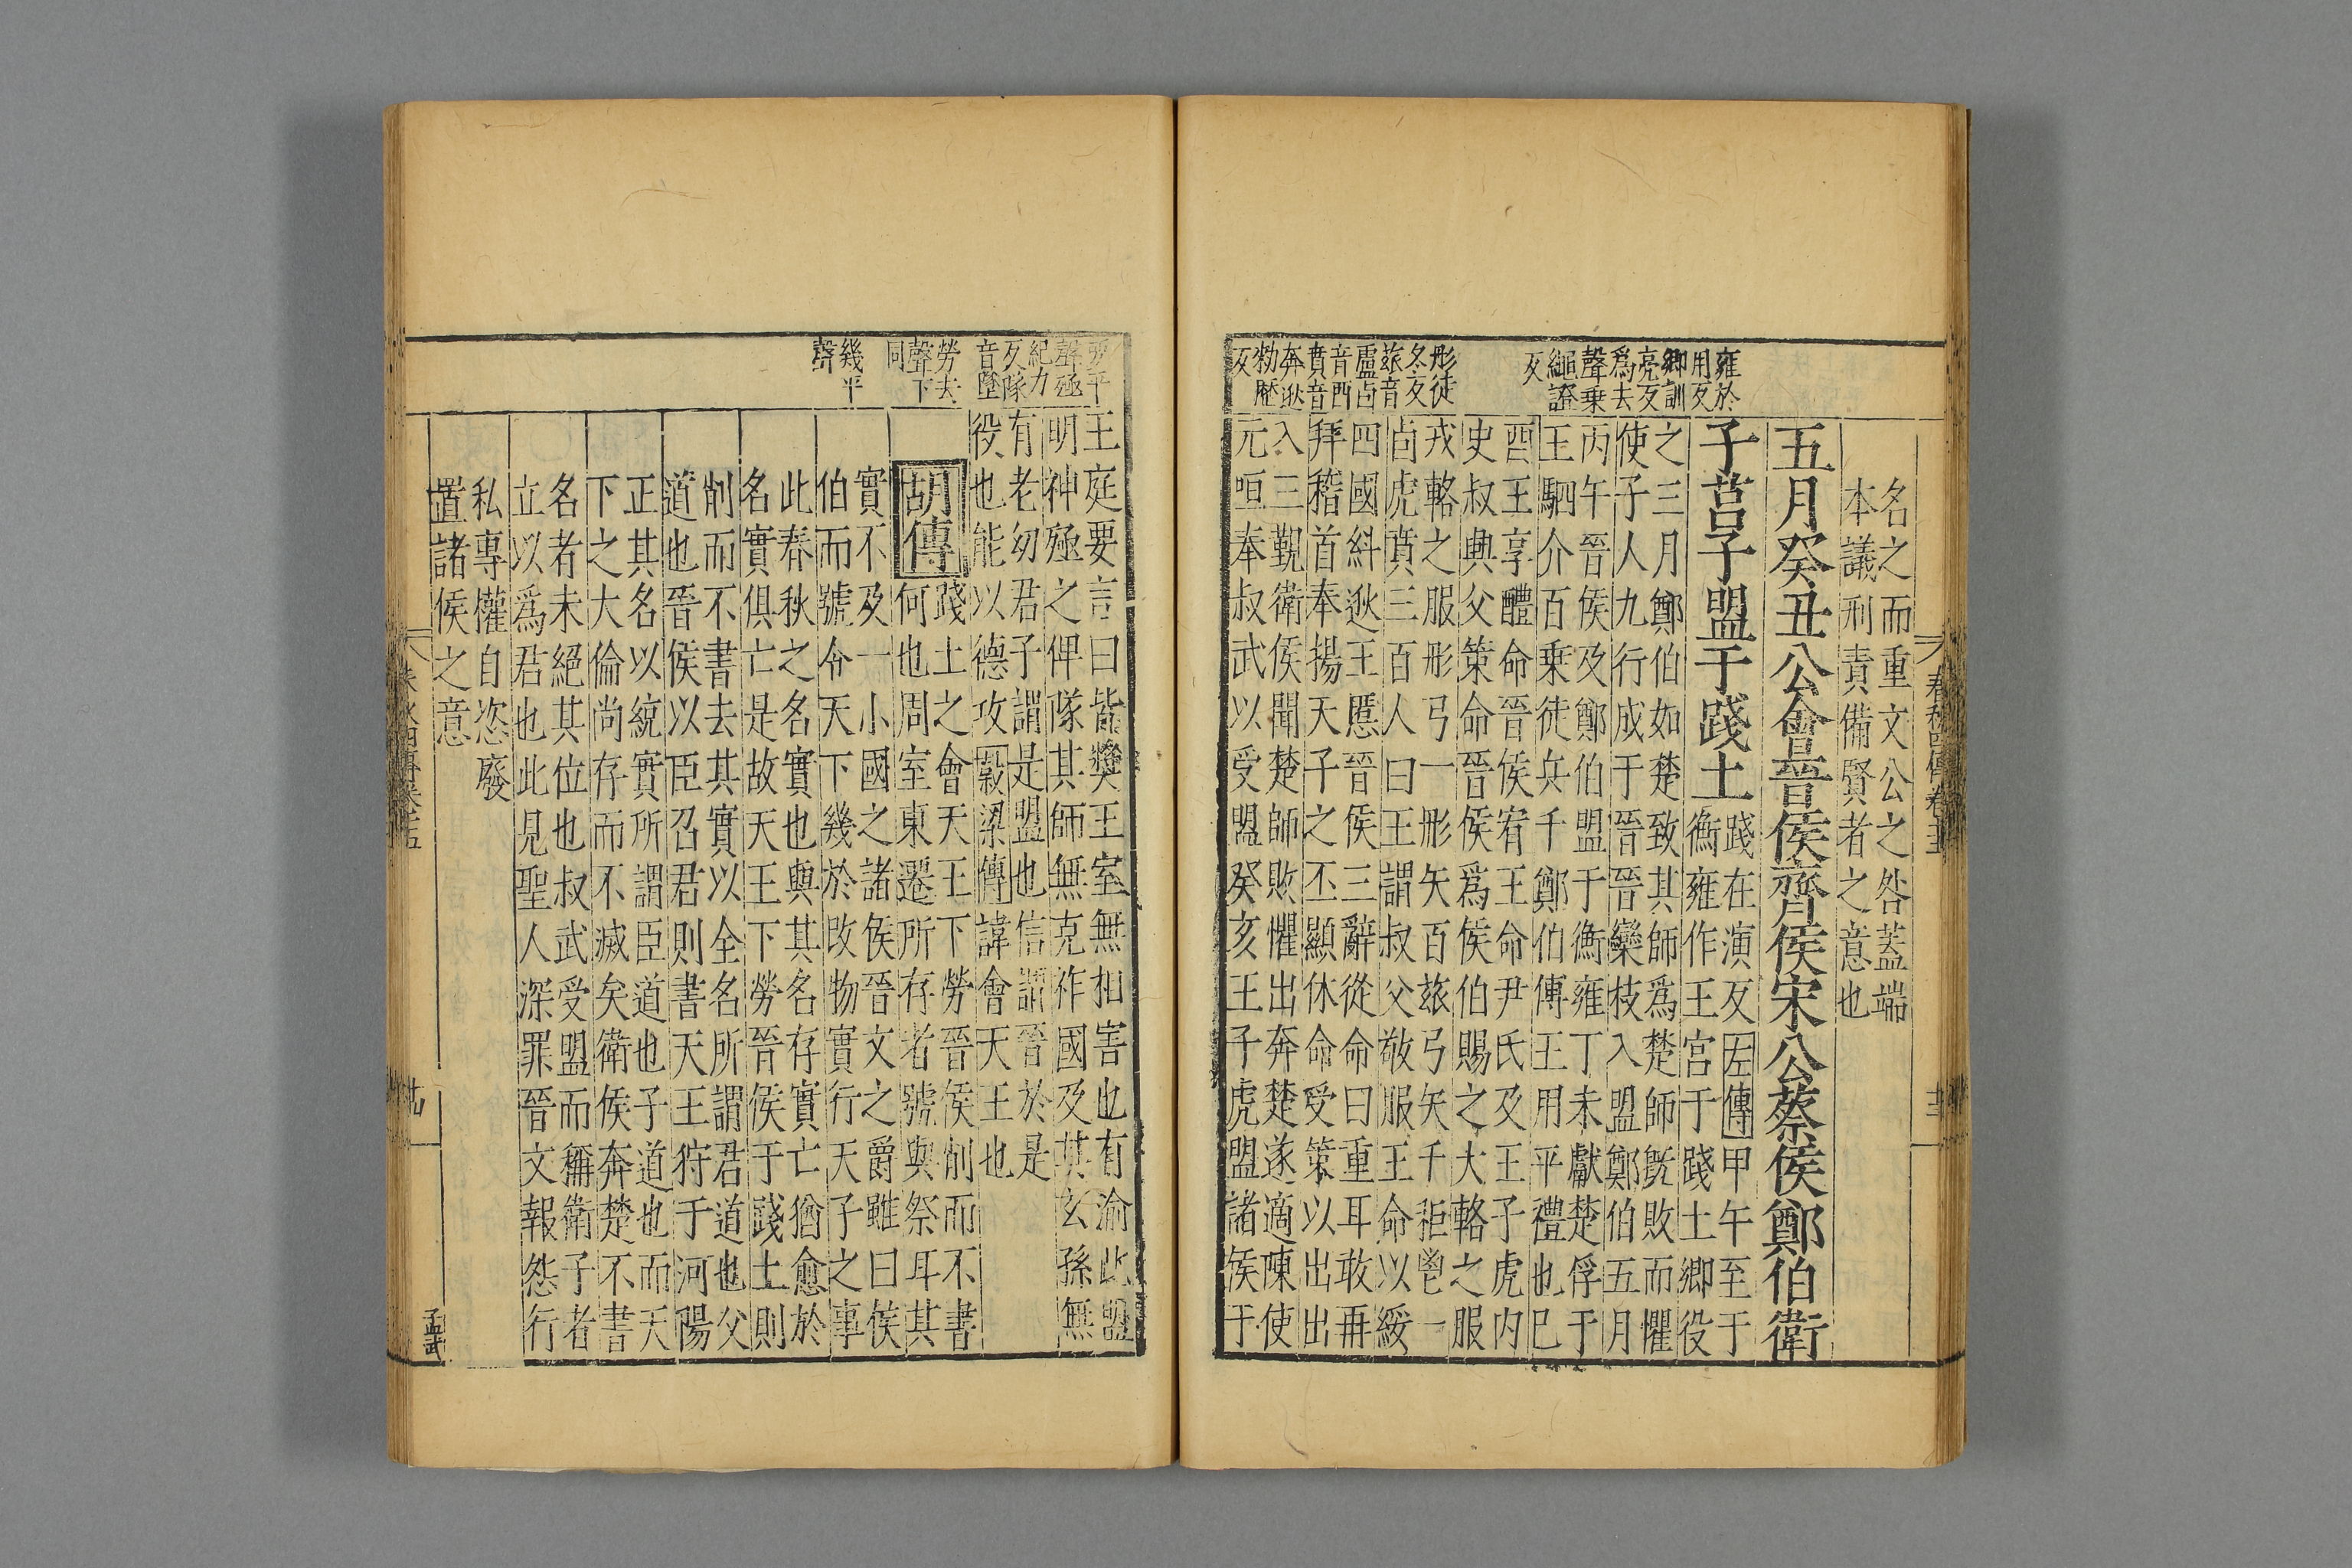 名之而重文公之咎蓋端
本議刑責備賢者之意也
五月癸丑公會晉侯齊侯宋公蔡侯鄭伯衛
子莒子盟于踐土
踐在演反左傳甲午至于
衡雍作王宮于踐土鄉役
之三月鄭伯如楚致其師爲楚師旣敗而懼
使子人九行成于晉晉欒枝入盟鄭伯五月
丙午晉侯及鄭伯盟于衡雍丁未獻楚俘于
王駟介百乗徒兵千鄭伯傅王用平禮也巳
酉王享醴命晉侯宥王命尹氏及王子虎内
史叔興父策命晉侯爲侯伯賜之大輅之服
戎輅之服彤弓一彤矢百玈弓矢千秬鬯一
卣虎賁三百人曰王謂叔父敬服王命以綏
四國糾逖王慝晉侯三辭從命曰重耳敢再
拜稽首奉揚天子之丕顯休命受策以出出
入三覲衛侯聞楚師敗懼出奔楚遂適陳使
元咺奉叔武以受盟癸亥王子虎盟諸侯于
雍於
用反
鄉訓
亮反
爲去
聲乗
繩證
反
彤徒
冬反
玈音
盧卣
音酉
賁音
奔逖
勑歷
反
春秋四傳卷十五
王庭要言曰皆奬王室無相害也有渝此盟
明神殛之俾隊其師無克祚國及其玄孫無
有老幼君子謂是盟也信謂晉於是
役也能以德攻穀梁傳諱會天王也
胡傳
踐土之會天王下勞晉侯削而不書
何也周室東遷所存者號與祭耳其
實不及一小國之諸侯晉文之爵雖曰侯
伯而號令天下幾於改物實行天子之事
此春秋之名實也與其名存實亡猶愈於
名實俱亡是故天王下勞晉侯于踐土則
削而不書去其實以全名所謂君道也父
道也晉侯以臣召君則書天王狩于河陽
正其名以統實所謂臣道也子道也而天
下之大倫尚存而不滅矣衛侯奔楚不書
名者未絕其位也叔武受盟而稱衛子者
立以爲君也此見聖人深罪晉文報怨行
私專權自恣廢
置諸侯之意
要平
聲殛
紀力
反隊
音墜
勞去
聲下
同
幾平
聲